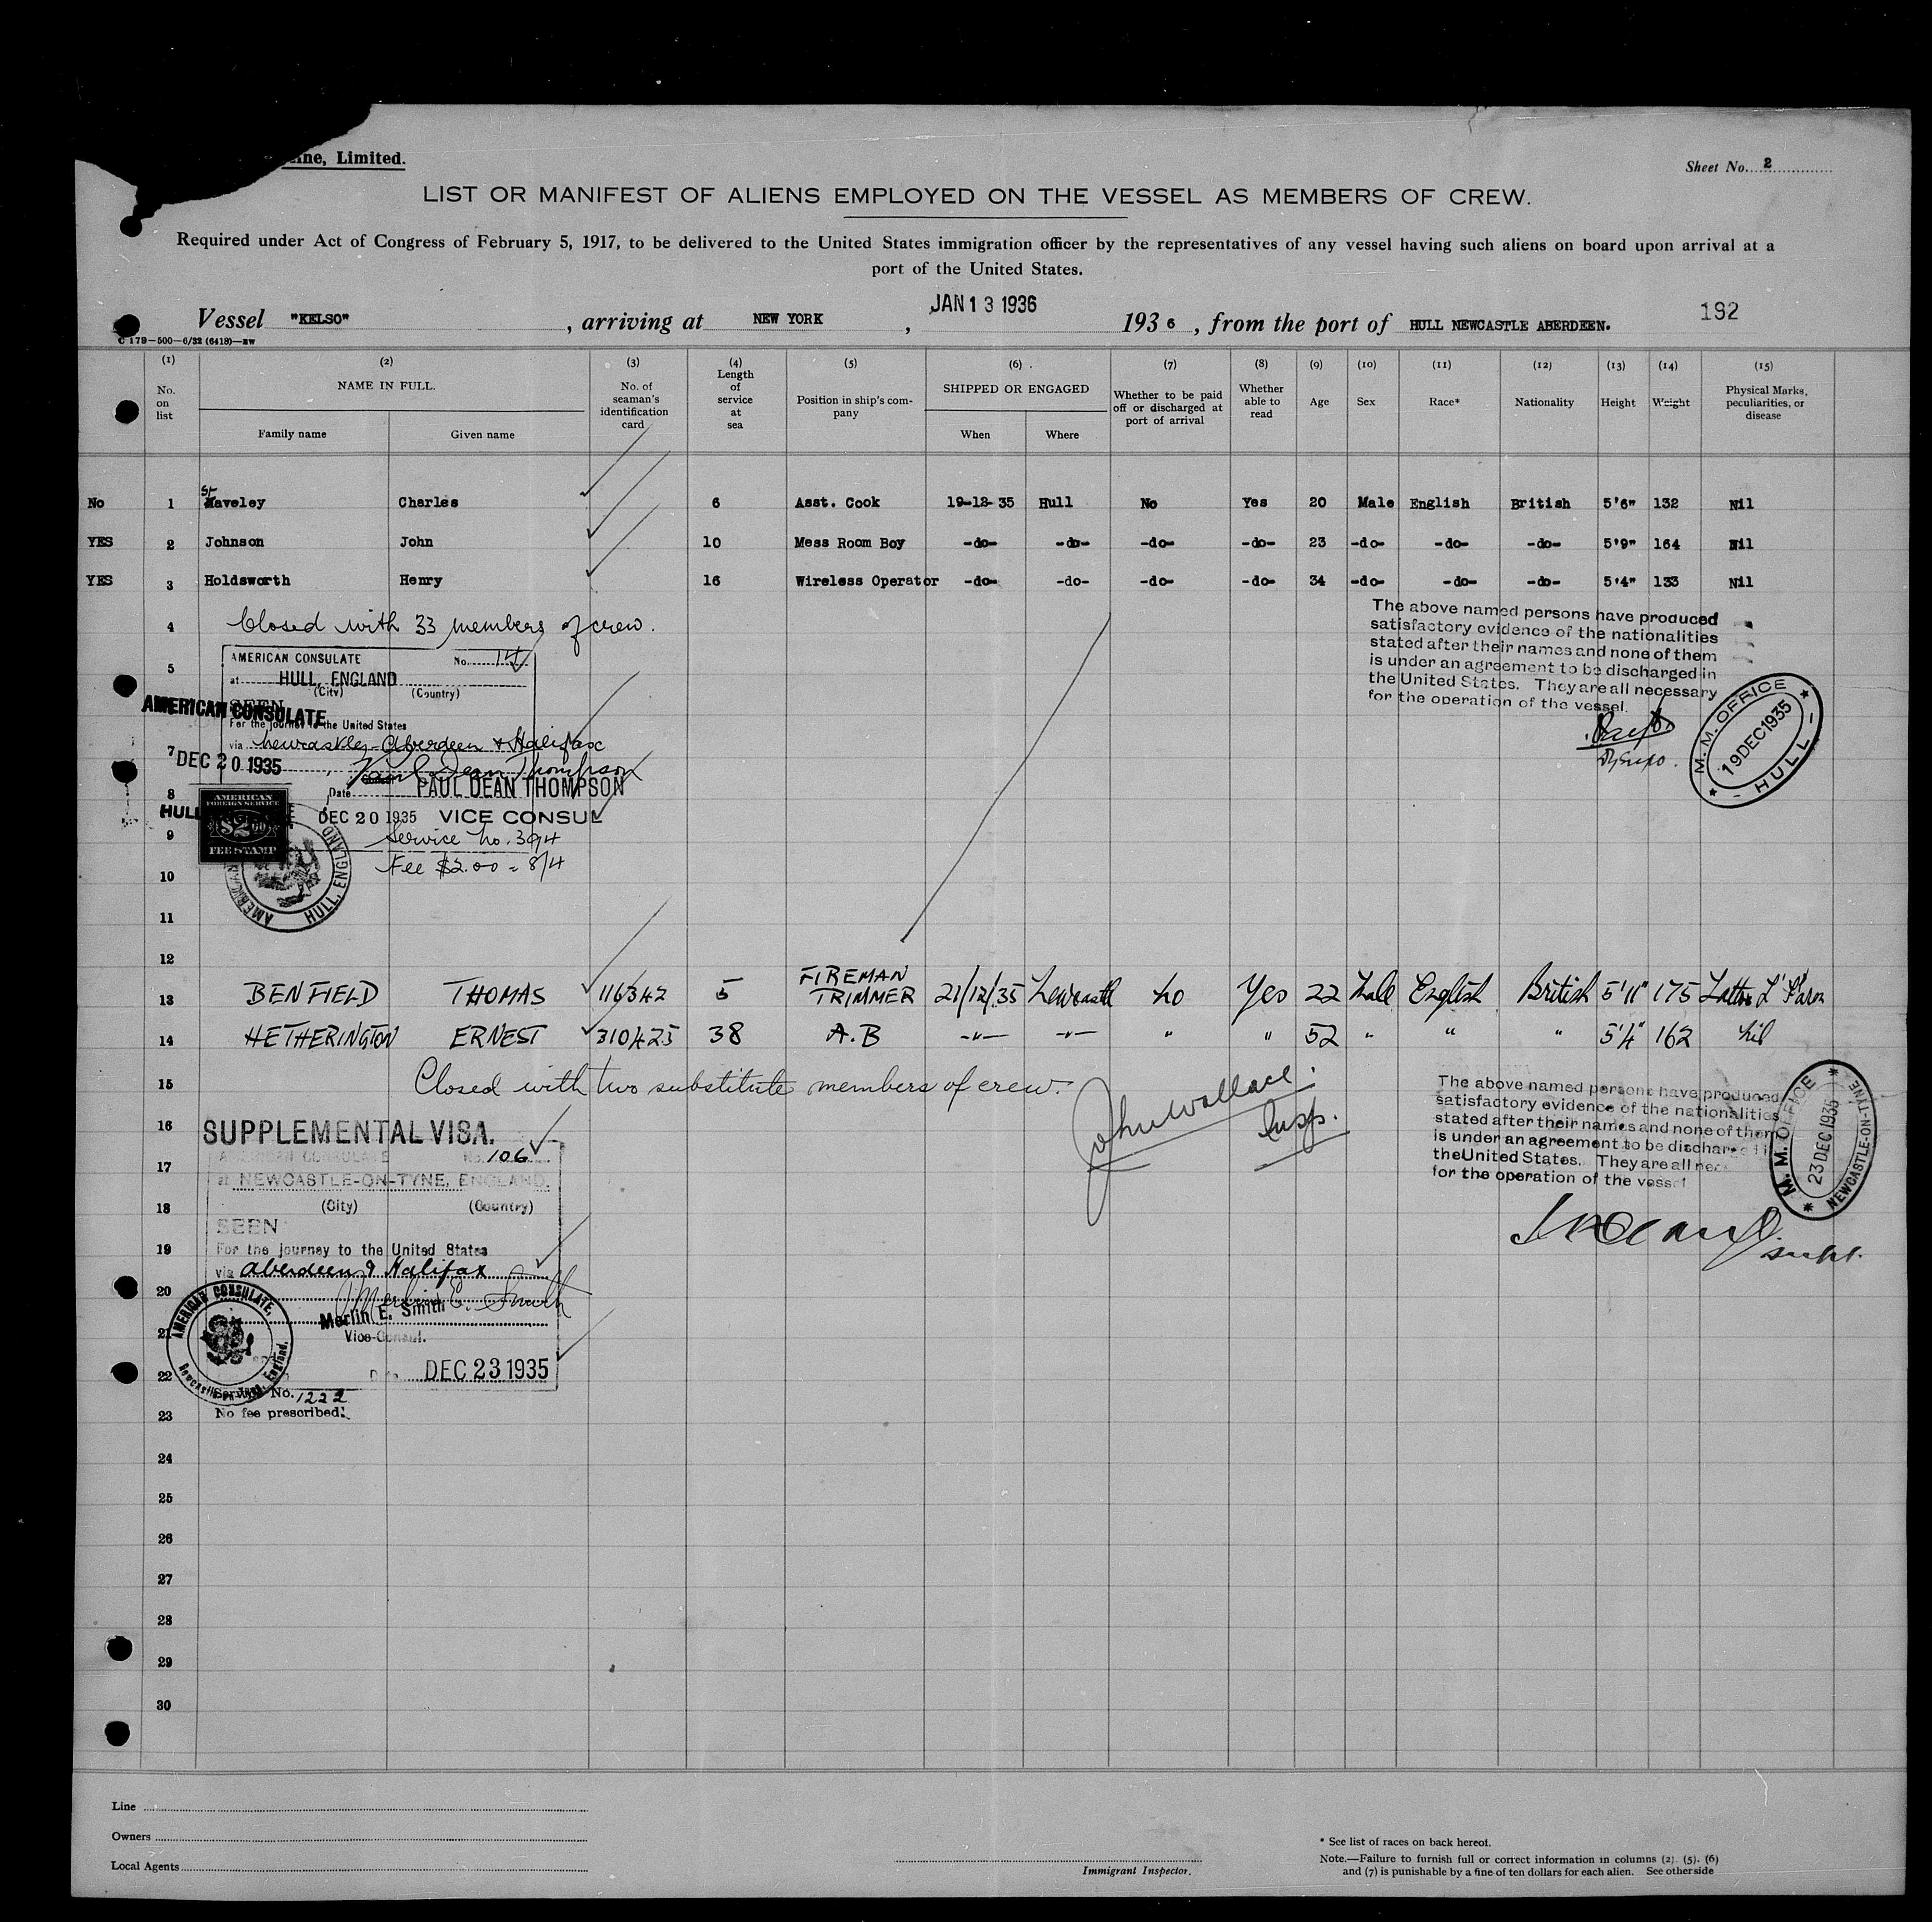 ine, Limited.
Sheet No. 2
LIST OR MANIFEST OF ALIENS EMPLOYED ON THE VESSEL AS MEMBERS OF CREW.
Required under Act of Congress of February 5, 1917, to be delivered to the United States immigration officer by the representatives of any vessel having such aliens on board upon arrival at a
port of the United States.
Vessel "KELSO", arriving at NEW YORK, JAN 13 1936 1936, from the port of HULL NEWCASTLE ABERDEEN.
192
C 179-500-6/32 (6418)
(1) (2) (3) (4) (5) (6) (7) (8) (9) (10) (11) (12) (13) (14) (15)
No. on list
NAME IN FULL.
Family name
Given name
No. of seaman's identification card
Length of service at sea
Position in ship's company
SHIPPED OR ENGAGED
When
Where
Whether to be paid off or discharged at port of arrival
Whether able to read
Age
Sex
Race*
Nationality
Height
Weight
Physical Marks, peculiarities, or disease
No 1 Staveley Charles 6 Asst. Cook 19-12-35 Hull No Yes 20 Male English British 5'6" 132 Nil
YES 2 Johnson John 10 Mess Room Boy -do- -do- -do- -do- 23 -do- -do- -do- 5'9" 164 Nil
YES 3 Holdsworth Henry 16 Wireless Operator -do- -do- -do- -do- 34 -do- -do- -do- 5'4" 133 Nil
4 Closed with 33 members of crew.
The above named persons have produced
satisfactory evidence of the nationalities
stated after their names and none of them
is under an agreement to be discharged in
the United States. They are all necessary
for the operation of the vessel.
M. M. OFFICE
19 DEC 1935
HULL
5
AMERICAN CONSULATE No.
at HULL, ENGLAND
(City) (Country)
SEEN
AMERICAN CONSULATE
For the journey to the United States
via Newcastle, Aberdeen & Halifax
7
DEC 20 1935
Paul Dean Thompson
PAUL DEAN THOMPSON
Date DEC 20 1935 VICE CONSUL
8
HULL
AMERICAN
FOREIGN SERVICE
$2.00
FEE STAMP
9
Service No. 394
Fee $2.00 = 8/4
10
AMERICAN
HULL, ENGLAND
11
12
13 BENFIELD THOMAS 116342 5 FIREMAN TRIMMER 21/12/35 Newcastle No Yes 22 Male English British 5'11" 175
14 HETHERINGTON ERNEST 310425 38 A.B -"- -"- " " 52 " " " 5'4" 162 Nil
15 Closed with two substitute members of crew.
John Wallace
Insp.
The above named persons have produced
satisfactory evidence of the nationalities
stated after their names and none of them
is under an agreement to be discharged in
the United States. They are all nec
for the operation of the vessel
M. M. OFFICE
23 DEC 1935
NEWCASTLE-ON-TYNE
Supt.
16 SUPPLEMENTAL VISA.
AMERICAN CONSULATE No. 106
17
at NEWCASTLE-ON-TYNE, ENGLAND.
18
(City) (Country)
SEEN
19
For the journey to the United States
via Aberdeen & Halifax
20
Merlin E. Smith
Merlin E. Smith
Vice-Consul.
21
AMERICAN CONSULATE,
Newcastle-on-Tyne, England.
22
Date DEC 23 1935
Service No. 1222
No fee prescribed.
23
24
25
26
27
28
29
30
Line
Owners
Local Agents
Immigrant Inspector.
* See list of races on back hereof.
Note.—Failure to furnish full or correct information in columns (2), (5), (6)
and (7) is punishable by a fine of ten dollars for each alien. See other side